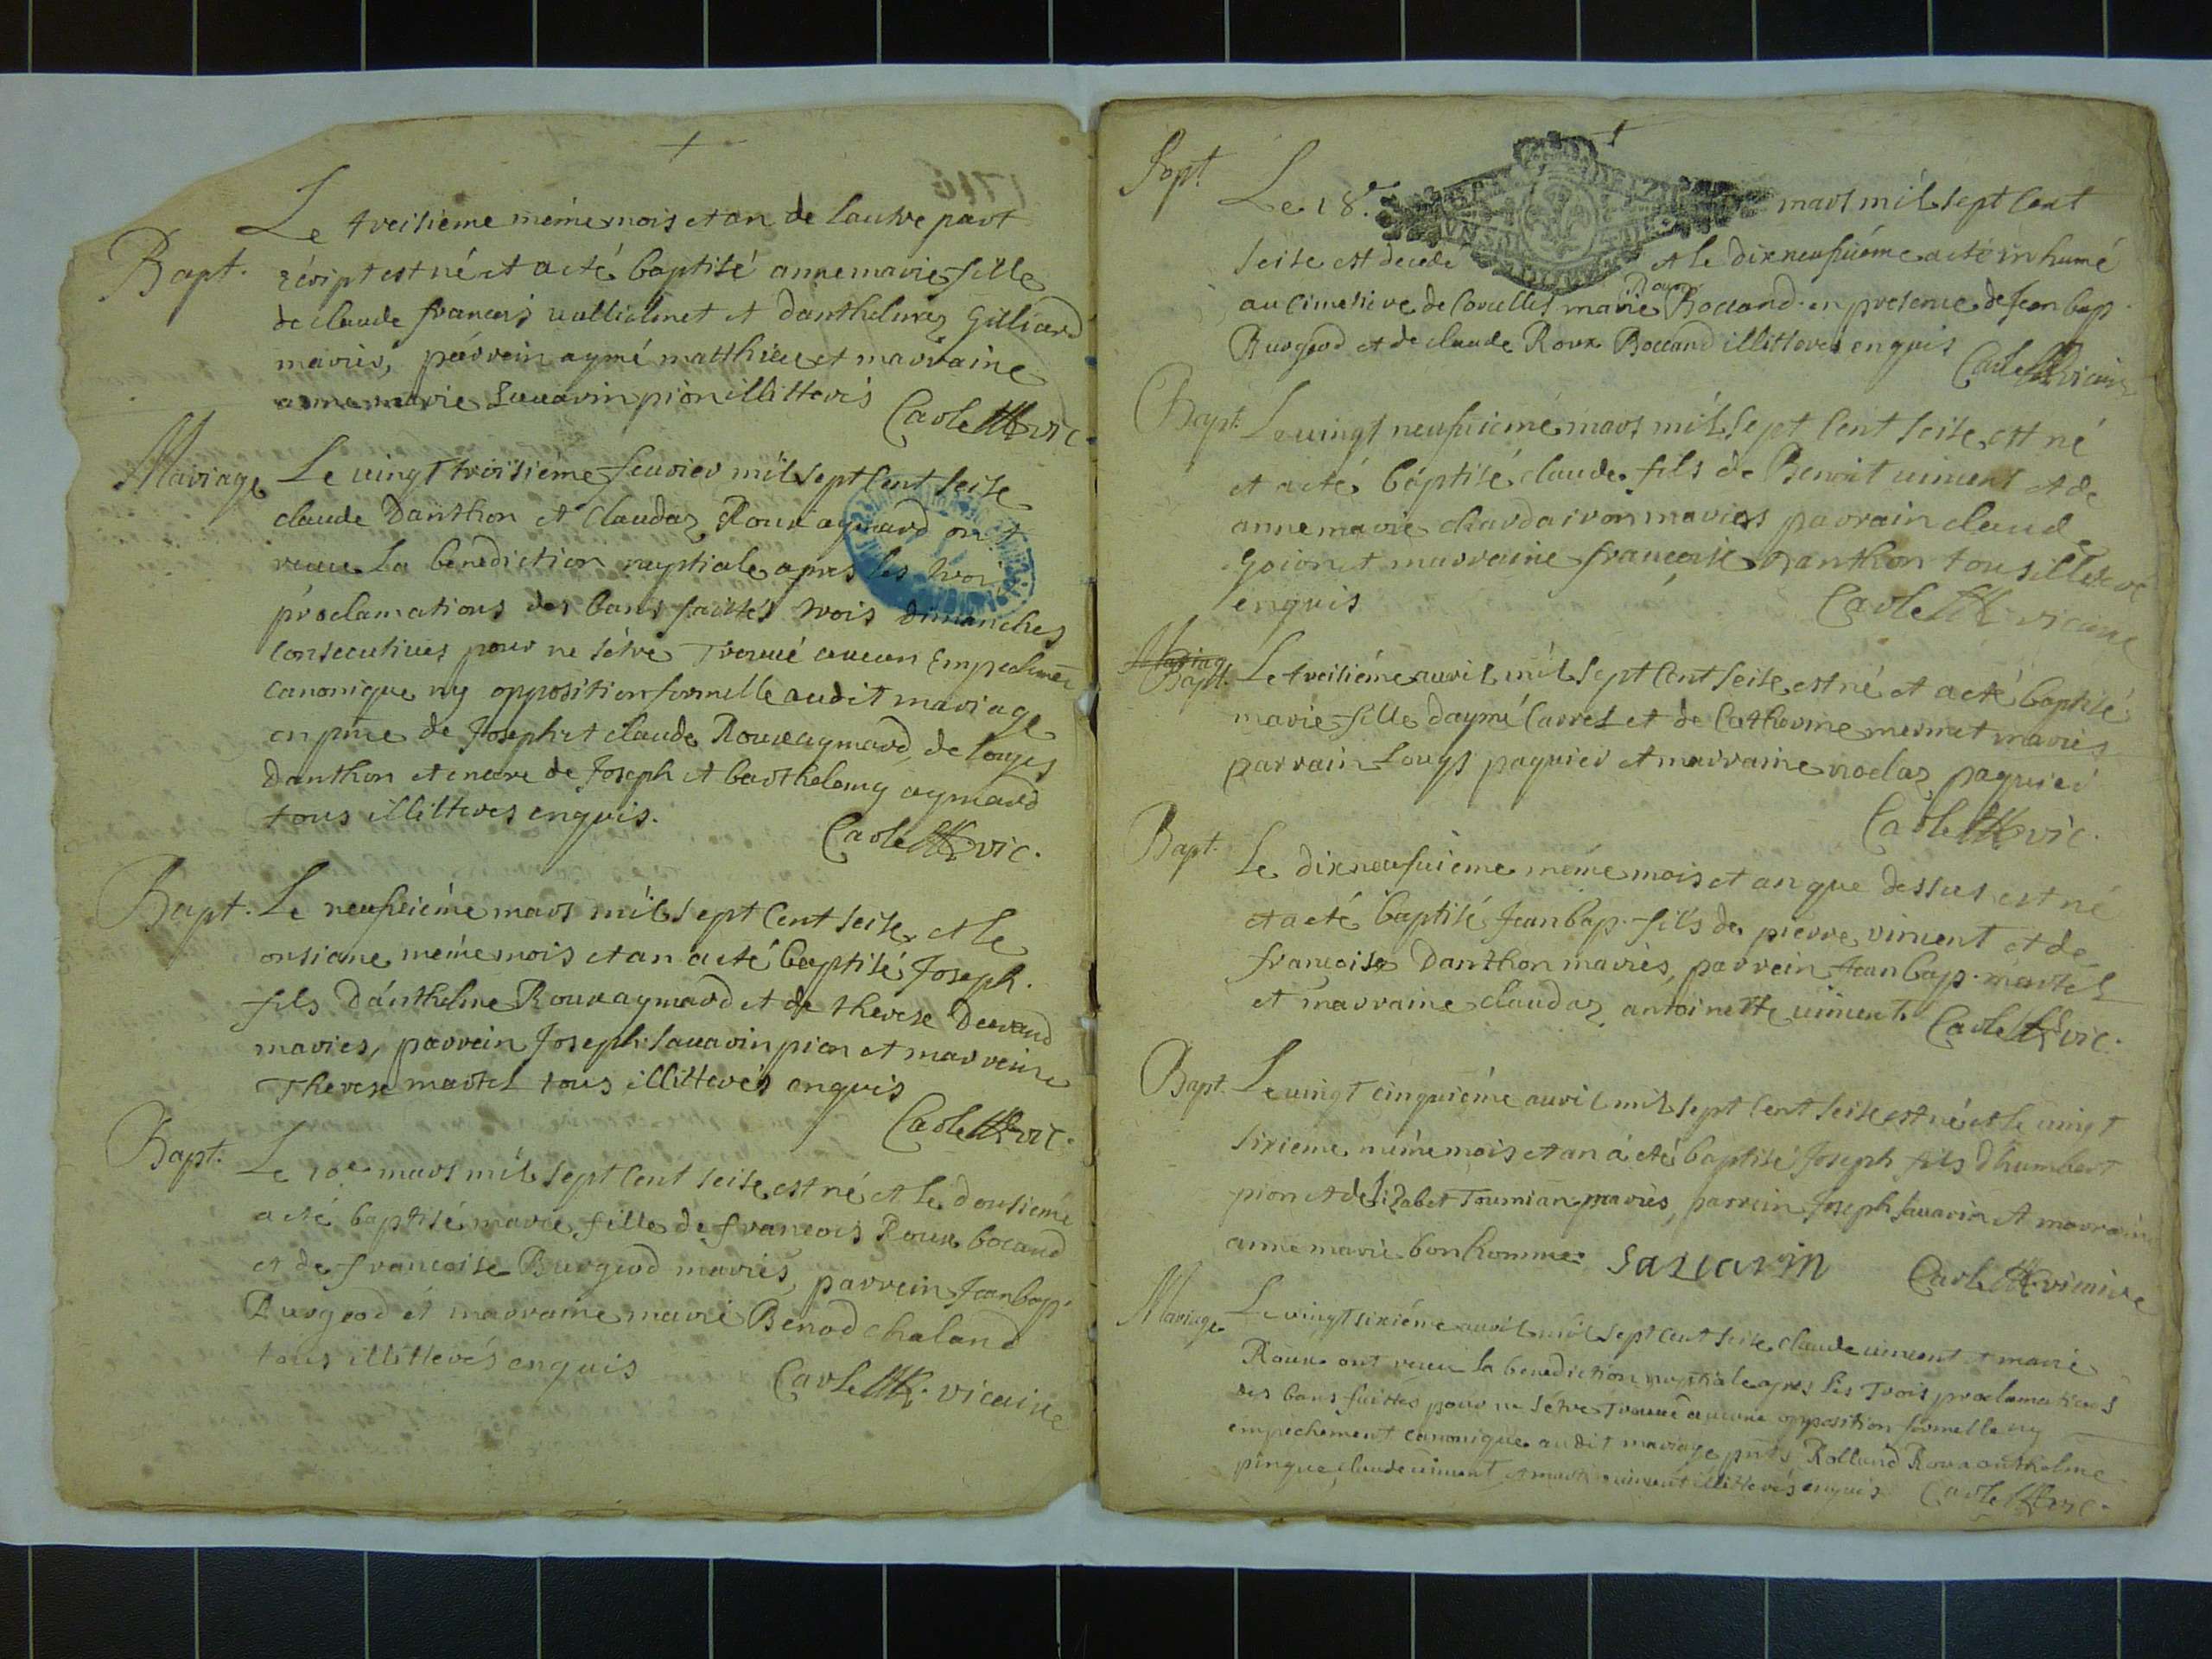 1716
Le treisieme même mois et an de lautre part
Bapt. récript est né et a eté baptisé anne marie fille
de claude francois uulliolmet et danthelmaz Gilliard
mariés, parrein aymé matthieu et marraine
anne marie Sauarin pion illitterés Carle vic.
Mariage Le uingt troisiéme feurier mil sept Cent seise
claude Danthon et Claudaz Roux aymard ont
receu La benediction nuptiale apres les trois
proclamations des bans faittes trois dimanches
Consecutiues pour ne sétre Trouué aucun Empechmẽt
Canonique ny opposition formelle audit mariage
en pñce de Joseph et claude Roux aymard, de Louys
Danthon et encore de Joseph et barthelemy aymard
tous illitteres enquis. Carle vic.
Bapt. Le neufuiéme mars mil sept Cent seise et le
onsieme méme mois et an a eté baptisé Joseph
fils Danthelme Roux aymard et de therese Deuraud
mariés, parrein Joseph Sauarin pion et marreine
Therese martel tous illitterés enquis
Carle vic.
Bapt. Le 10e mars mil sept Cent seise est né et le dousiéme
a eté baptisé marie fille de francois Roux bocand
et de francoise Burgeod mariés, parrein Jean bap.
Burgeod et marraine marie Benod chaland
tous illitterés enquis Carle vicaire
Sept. Le 18e mars mil sept Cent
seise est decede et le dixneufuiéme a eté inhumé
au Cimetiere de Corcelles marie Roux Boccand en presence de Jean bap.
Burgeod et de claude Roux Boccand illitteres enquis
Carle vicaire
Bapt. Le uingt neufuieme mars mil sept Cent seise est né
et a eté baptisé claude fils de Benoit uiment et de
anne marie chardairon mariés parrain claude
Goion et marraine francoise Danthon tous illiteré
enquis Carle vicaire
Mariag
Bapt. Le treisiéme auril mil sept Cent seise est né et a eté baptisé
marie fille daymé Carrel et de Catherine mermet mariés
parrain Louys paquier et marraine noelaz paquier
Carle vic.
Bapt. Le dixneufuieme méme mois et an que dessus est né
et a eté baptisé Jean bap. fils de pierre viment et de
francoise Danthon mariés, parrein Jean bap. martel
et marraine claudaz antoinette uiment Carle vic.
Bapt. Le uingt cinquiéme auril mil sept Cent seise est né et le uingt
sixieme méme mois et an a eté baptisé Joseph fils dhumbert
pion et de Lizabet Toumian mariés, parrein Joseph Sauarin et marraine
anne marie bonhomme. Sauarin Carle vicaire
Mariage Le vingt sixiéme auril mil sept Cent seise claude uiment et marie
Roux ont receu la benediction nuptiale apres les Trois proclamations
des bans faittes pour ne sétre Trouué aucune opposition formelle ny
empechement canonique audit mariage pñts Rolland Roux anthelme
pingue claude uiment et uiment illitterés enquis Carle vic.